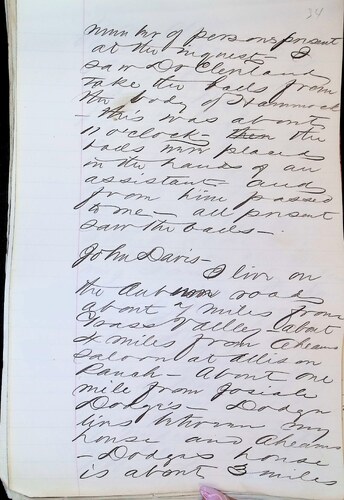 34
number of persons present
at the inquest - I
saw Dr Cleveland
take the balls from
the body of Hammock
- this was about
11 o'clock - then the
balls were placed
in the hands of an
assistant and
from him passed
to me - all present
saw the balls -
John Davis -
I live on
the Auburn road
about 7 miles from
Grass Valley - about
4 miles from Aheans
Saloon at Allison
Ranch - About one
mile from Josiah
Dodge's - Dodge
lives between my
house and Aheans
- Dodges house
is about 3 miles